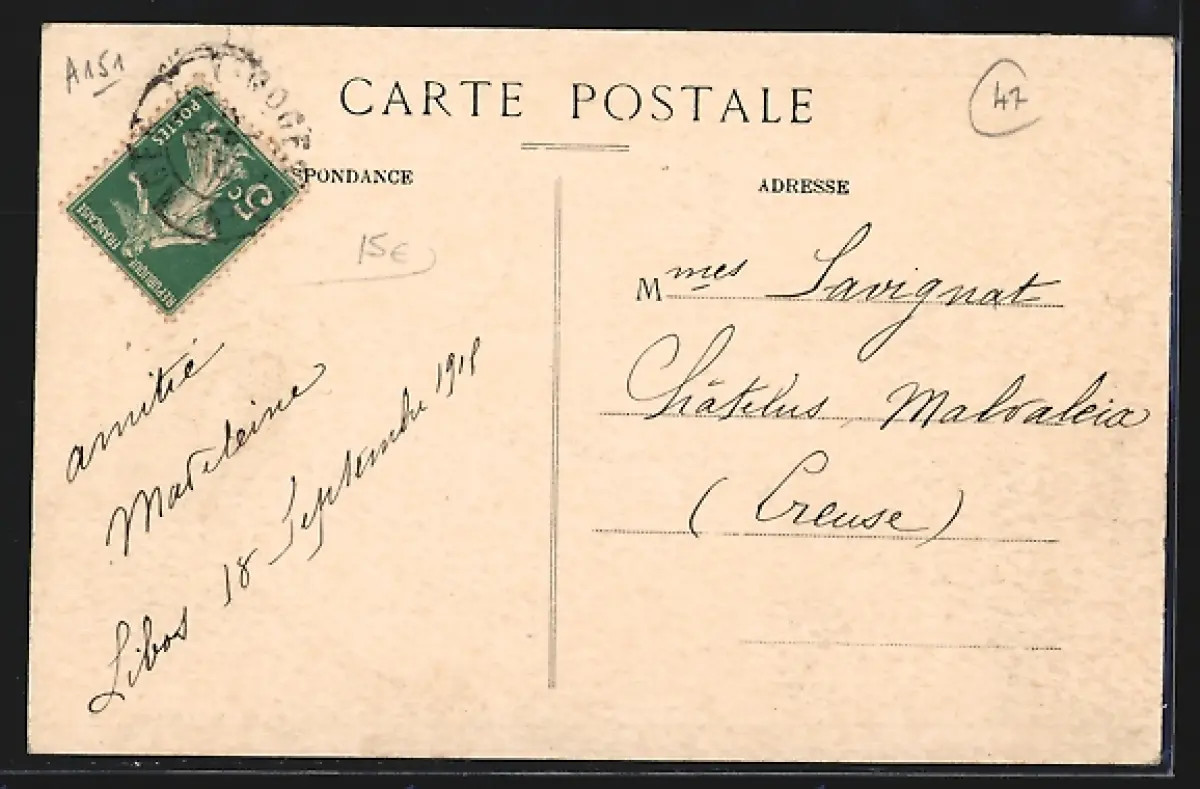 A151
CARTE POSTALE
47
SPONDANCE
ADRESSE
POSTES
5c
REPUBLIQUE FRANÇAISE
15€
Mmes Savignat
Châtelus Malvaleix
(Creuse)
amitié
Madeleine
Libos 18 Septembre